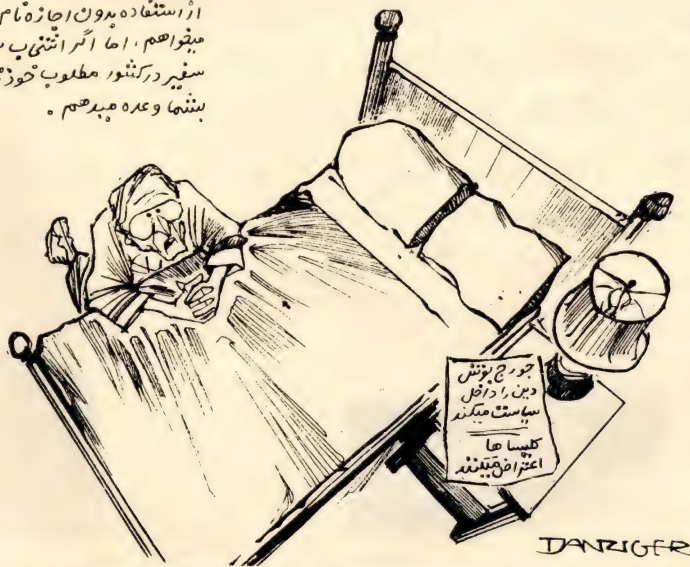 از استفاده بدون اجازه نام
میخواهم، اما اگر انتخاب
سفیر در کشور مطلوب خود
بشما وعده میدهم .
جورج بوش
دین را داخل
سیاست میکند
کلیسا ها
اعتراض میکنند
DANZIGER